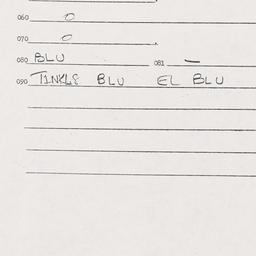 060 0
070 0
080 BLU 081 —
090 TINKLE BLU EL BLU